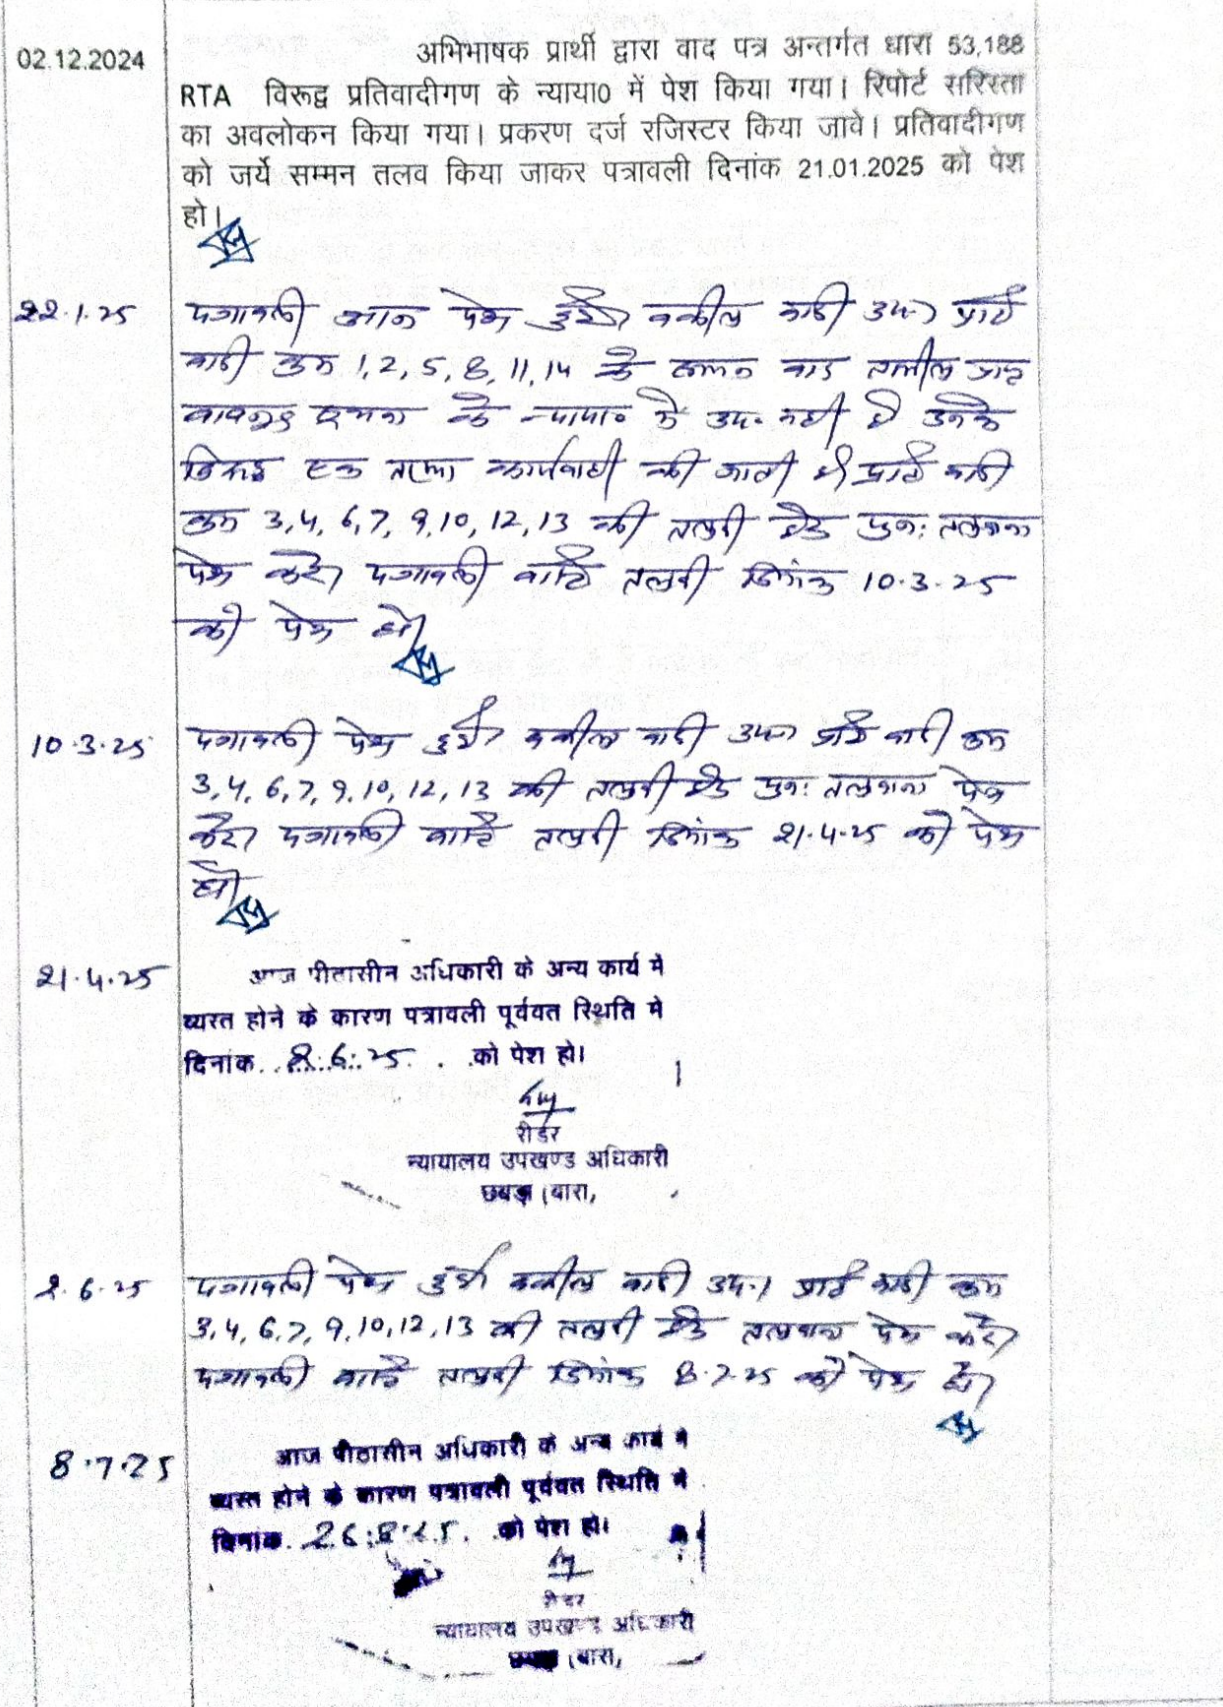 02.12.2024
अभिभाषक प्रार्थी द्वारा वाद पत्र अन्तर्गत धारा 53,188
RTA विरूद्व प्रतिवादीगण के न्याया0 में पेश किया गया। रिपोर्ट सरिस्ता
का अवलोकन किया गया। प्रकरण दर्ज रजिस्टर किया जावे। प्रतिवादीगण
को जर्ये सम्मन तलव किया जाकर पत्रावली दिनांक 21.01.2025 को पेश
हो।
22.1.25
पत्रावली आज पेश हुई। वकील वादी उप0 प्रति
वादी क्रम 1, 2, 5, 8, 11, 14 के सम्मन बाद तामील प्राप्त
बावजूद सूचना के न्याया० में उप. नही है उनके
विरूद्ध एक तरफा कार्यवाही की जाती है। प्रति वादी
क्रम 3,4, 6,7, 9,10, 12, 13 की तलबी हेतु पुन: तलवाना
पेश करे। पत्रावली वास्ते तलबी दिनांक 10.3.25
को पेश हो।
10.3.25
पत्रावली पेश हुई। वकील वादी उप0 प्रति वादी क्रम
3,4, 6,7, 9,10, 12, 13 की तलबी हेतु पुन: तलवाना पेश
करे। पत्रावली वास्ते तलबी दिनांक 21.4.25 को पेश
हो।
21.4.25
आज पीठासीन अधिकारी के अन्य कार्य मे
व्यस्त होने के कारण पत्रावली पूर्ववत स्थिति मे
दिनांक..2.6.25. . .को पेश हो।
रीडर
न्यायालय उपखण्ड अधिकारी
छबड़ा (बारा,
2.6.25
पत्रावली पेश हुई। वकील वादी उप.। प्रति वादी क्रम
3,4, 6,7, 9,10, 12, 13 की तलबी हेतु तलवाना पेश करे।
पत्रावली वास्ते तलबी दिनांक 8.7.25 को पेश हो।
8.7.25
आज पीठासीन अधिकारी के अन्य कार्य मे
व्यस्त होने के कारण पत्रावली पूर्ववत स्थिति मे
दिनांक. 26.8.25. .को पेश हो।
रीडर
न्यायालय उपखण्ड अधिकारी
छबड़ा (बारा,